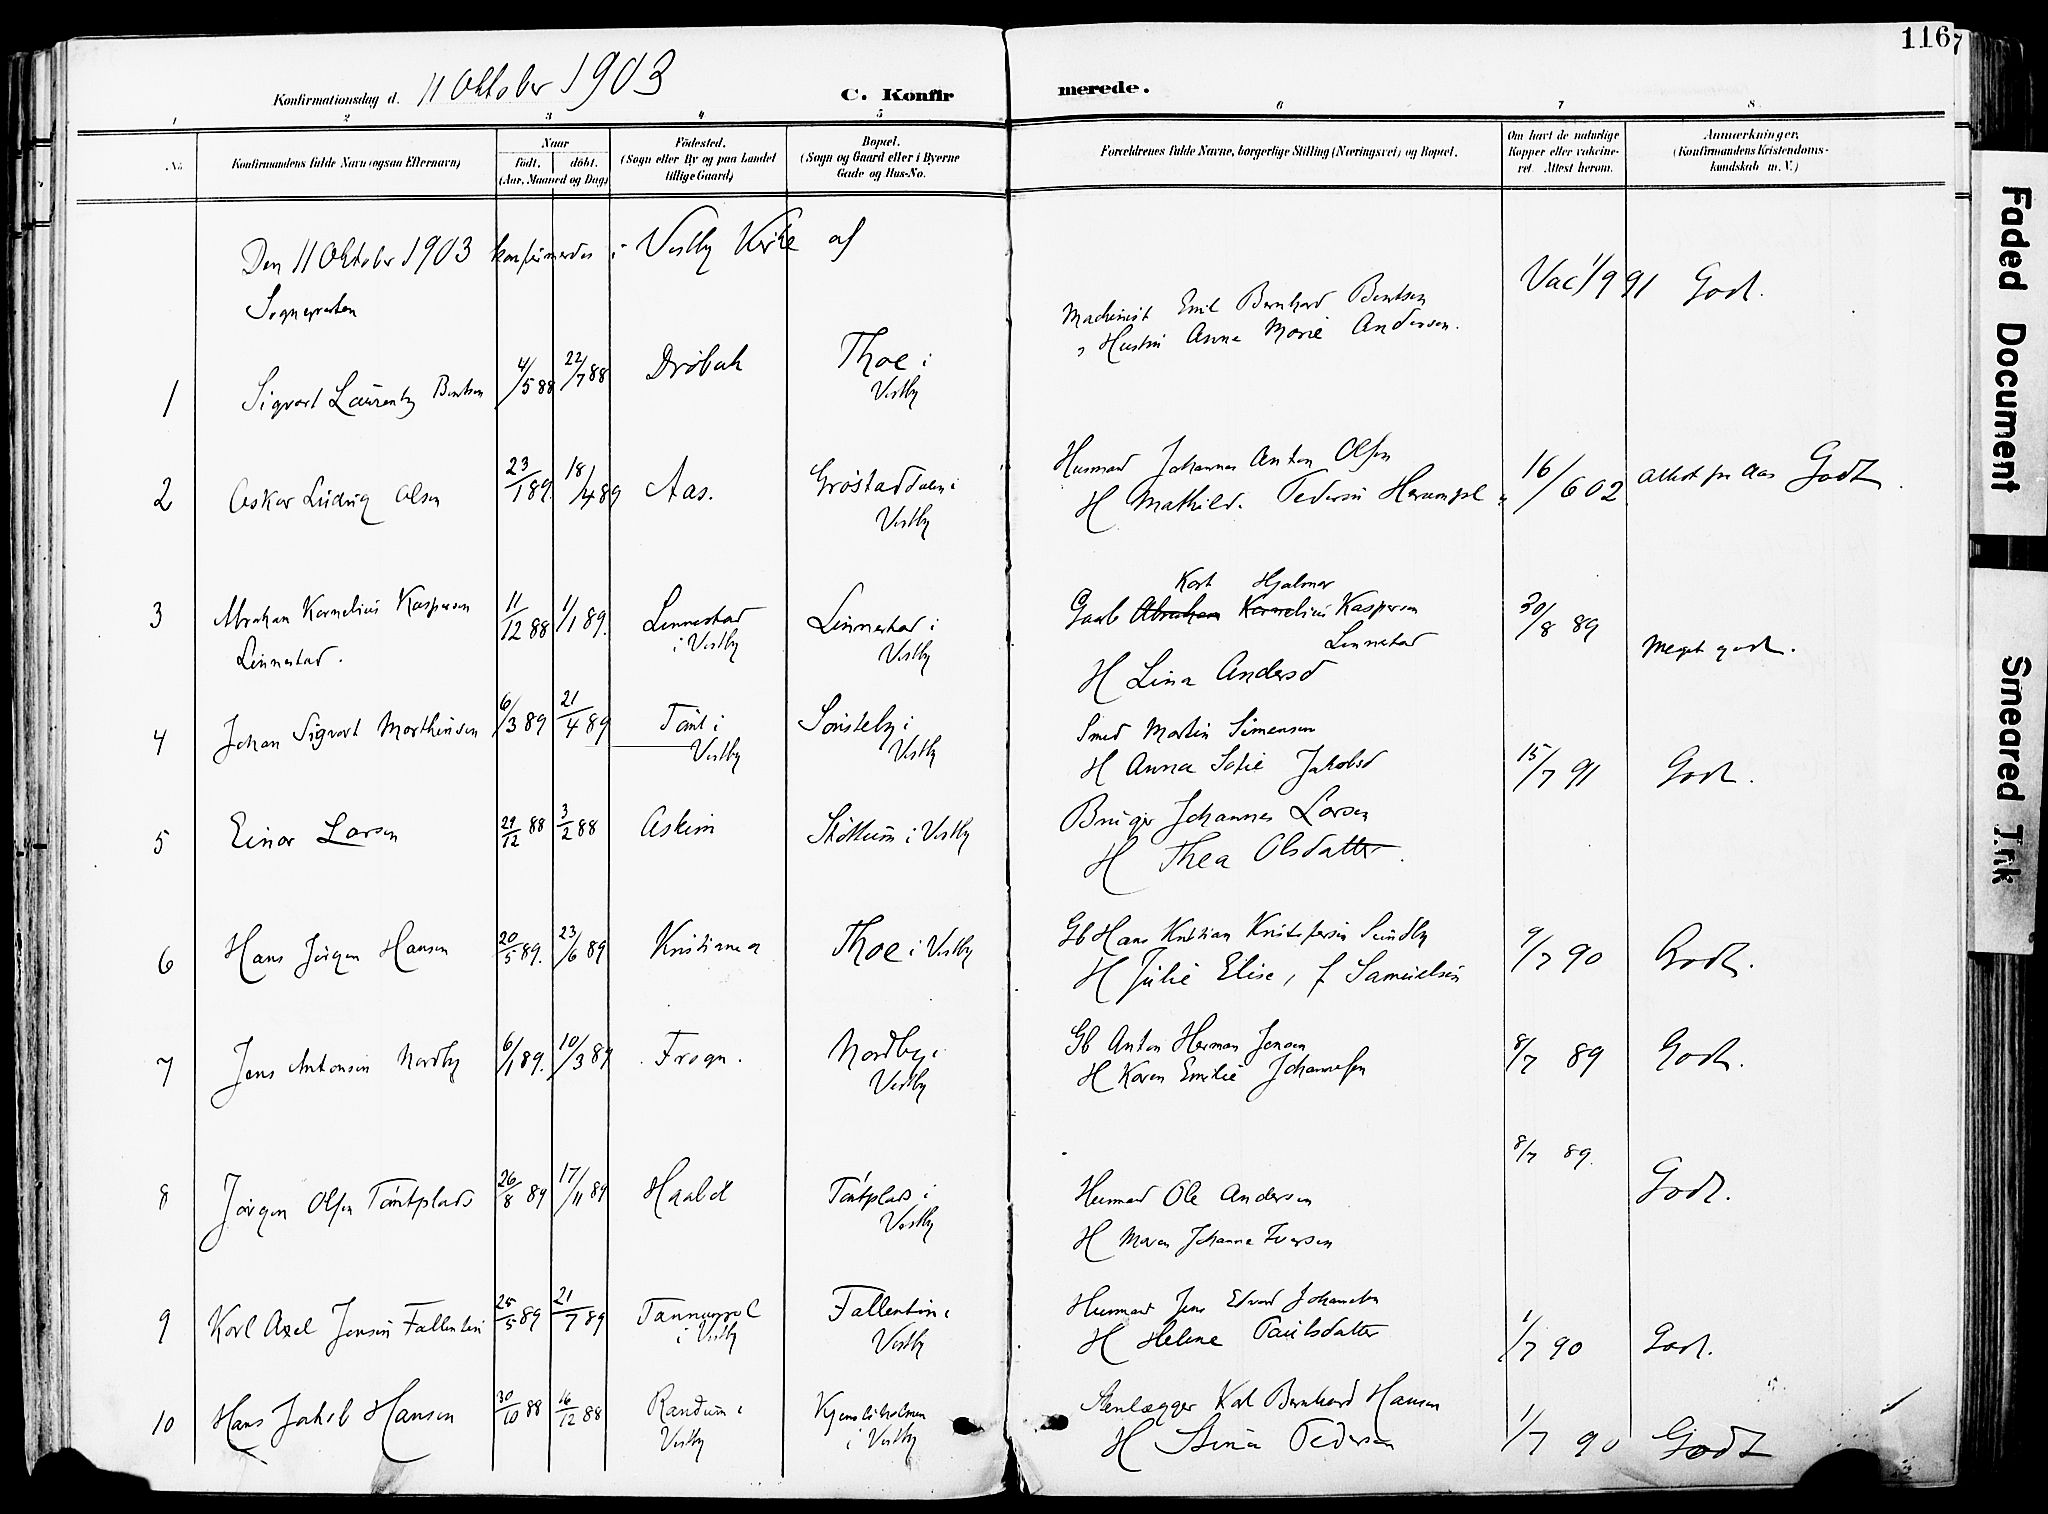 116
Konfirmationsdag d. 11 Oktober 1903
C. Konfirmerede.
1 2 3 4 5 6 7 8
No.
Konfirmandens fulde Navn (ogsaa Efternavn)
Naar
født. døbt.
(Aar, Maaned og Dag)
Fødested.
(Sogn eller By og paa Landet
tillige Gaard)
Bopæl.
(Sogn og Gaard eller i Byerne
Gade og Hus-No.
Forældrenes fulde Navne, borgerlige Stilling (Næringsvei) og Bopæl.
Om havt de naturlige
Kopper eller vakcine-
ret. Attest herom.
Anmærkninger,
(Konfirmandens Kristendoms-
kundskab m. V.)
Den 11 Oktober 1903 konfirmerdes i Vestby Kirke af
Sognepresten
1 Sigvart Laurentz Berntsen 4/5 88 22/7 88 Drøbak Thoe i
Vestby
Machinist Emil Bernhard Berntsen
Hustru Anna Marie Andersen.
Vac 1/9 91 Godt.
2 Oskar Ludvig Olsen 23/1 89. 18/4 89 Aas. Grøstaddalen i
Vestby
Husmand Johannes Anton Olsen
H Mathild. Pedersen
16/6 02. Attest fra Aas Godt
3 Abraham Kornelius Kaspersen
Linnestad.
11/12 88 1/1 89. Linnestad
i Vestby
Linnestad i
Vestby
Karl Hjalmar
Gaab Abraham Kornelius Kaspersen
Linnestad
H Lina Andersd
30/8 89 Meget godt.
4 Johan Sigvart Marthinsen 6/3 89 21/4 89 Taut i
Vestby
Sønsteby i
Vestby
Smed Martin Simensen
H Anna Sofie Jakobsd
15/7 91 Godt.
5 Einar Larsen 29/12 88 3/2 88 Askim Støttum i Vestby
Bruger Johannes Larsen
H Thea Olsdatter.
6 Hans Jørgen Hansen 20/5 89. 23/6 89 Kristiania Thoe i Vestby
Gb Hans Kristian Kristofersen Sundby
H Julie Elise, f Samuelsen
9/7 90 Godt.
7 Jens Antonsen Nordby 6/1 89. 10/3 89 Frogn. Nordby i
Vestby
Gb Anton Herman Jensen
H Karen Emilie Johannesen
8/7 89 Godt.
8 Jørgen Olsen Tautplads 26/8 89 17/11 89 Haabøl Tautplads i
Vestby
Husmand Ole Andersen
H Maren Johanne Iversen
8/7 89. Godt.
9 Karl Axel Jensen Fallentin 25/5 89 21/7 89
i Vestby
Fallentin i
Vestby
Husmand Jens Edvard Johansen
H Helene Paulsdatter
1/7 90 Godt.
10 Hans Jakob Hansen 30/10 88 16/12 88 Randum i
Vestby
i Vestby
Stenlægger Karl Bernhard Hansen
H Stina Pedersen
1/7 90 Godt
Faded Document
Smeared Ink